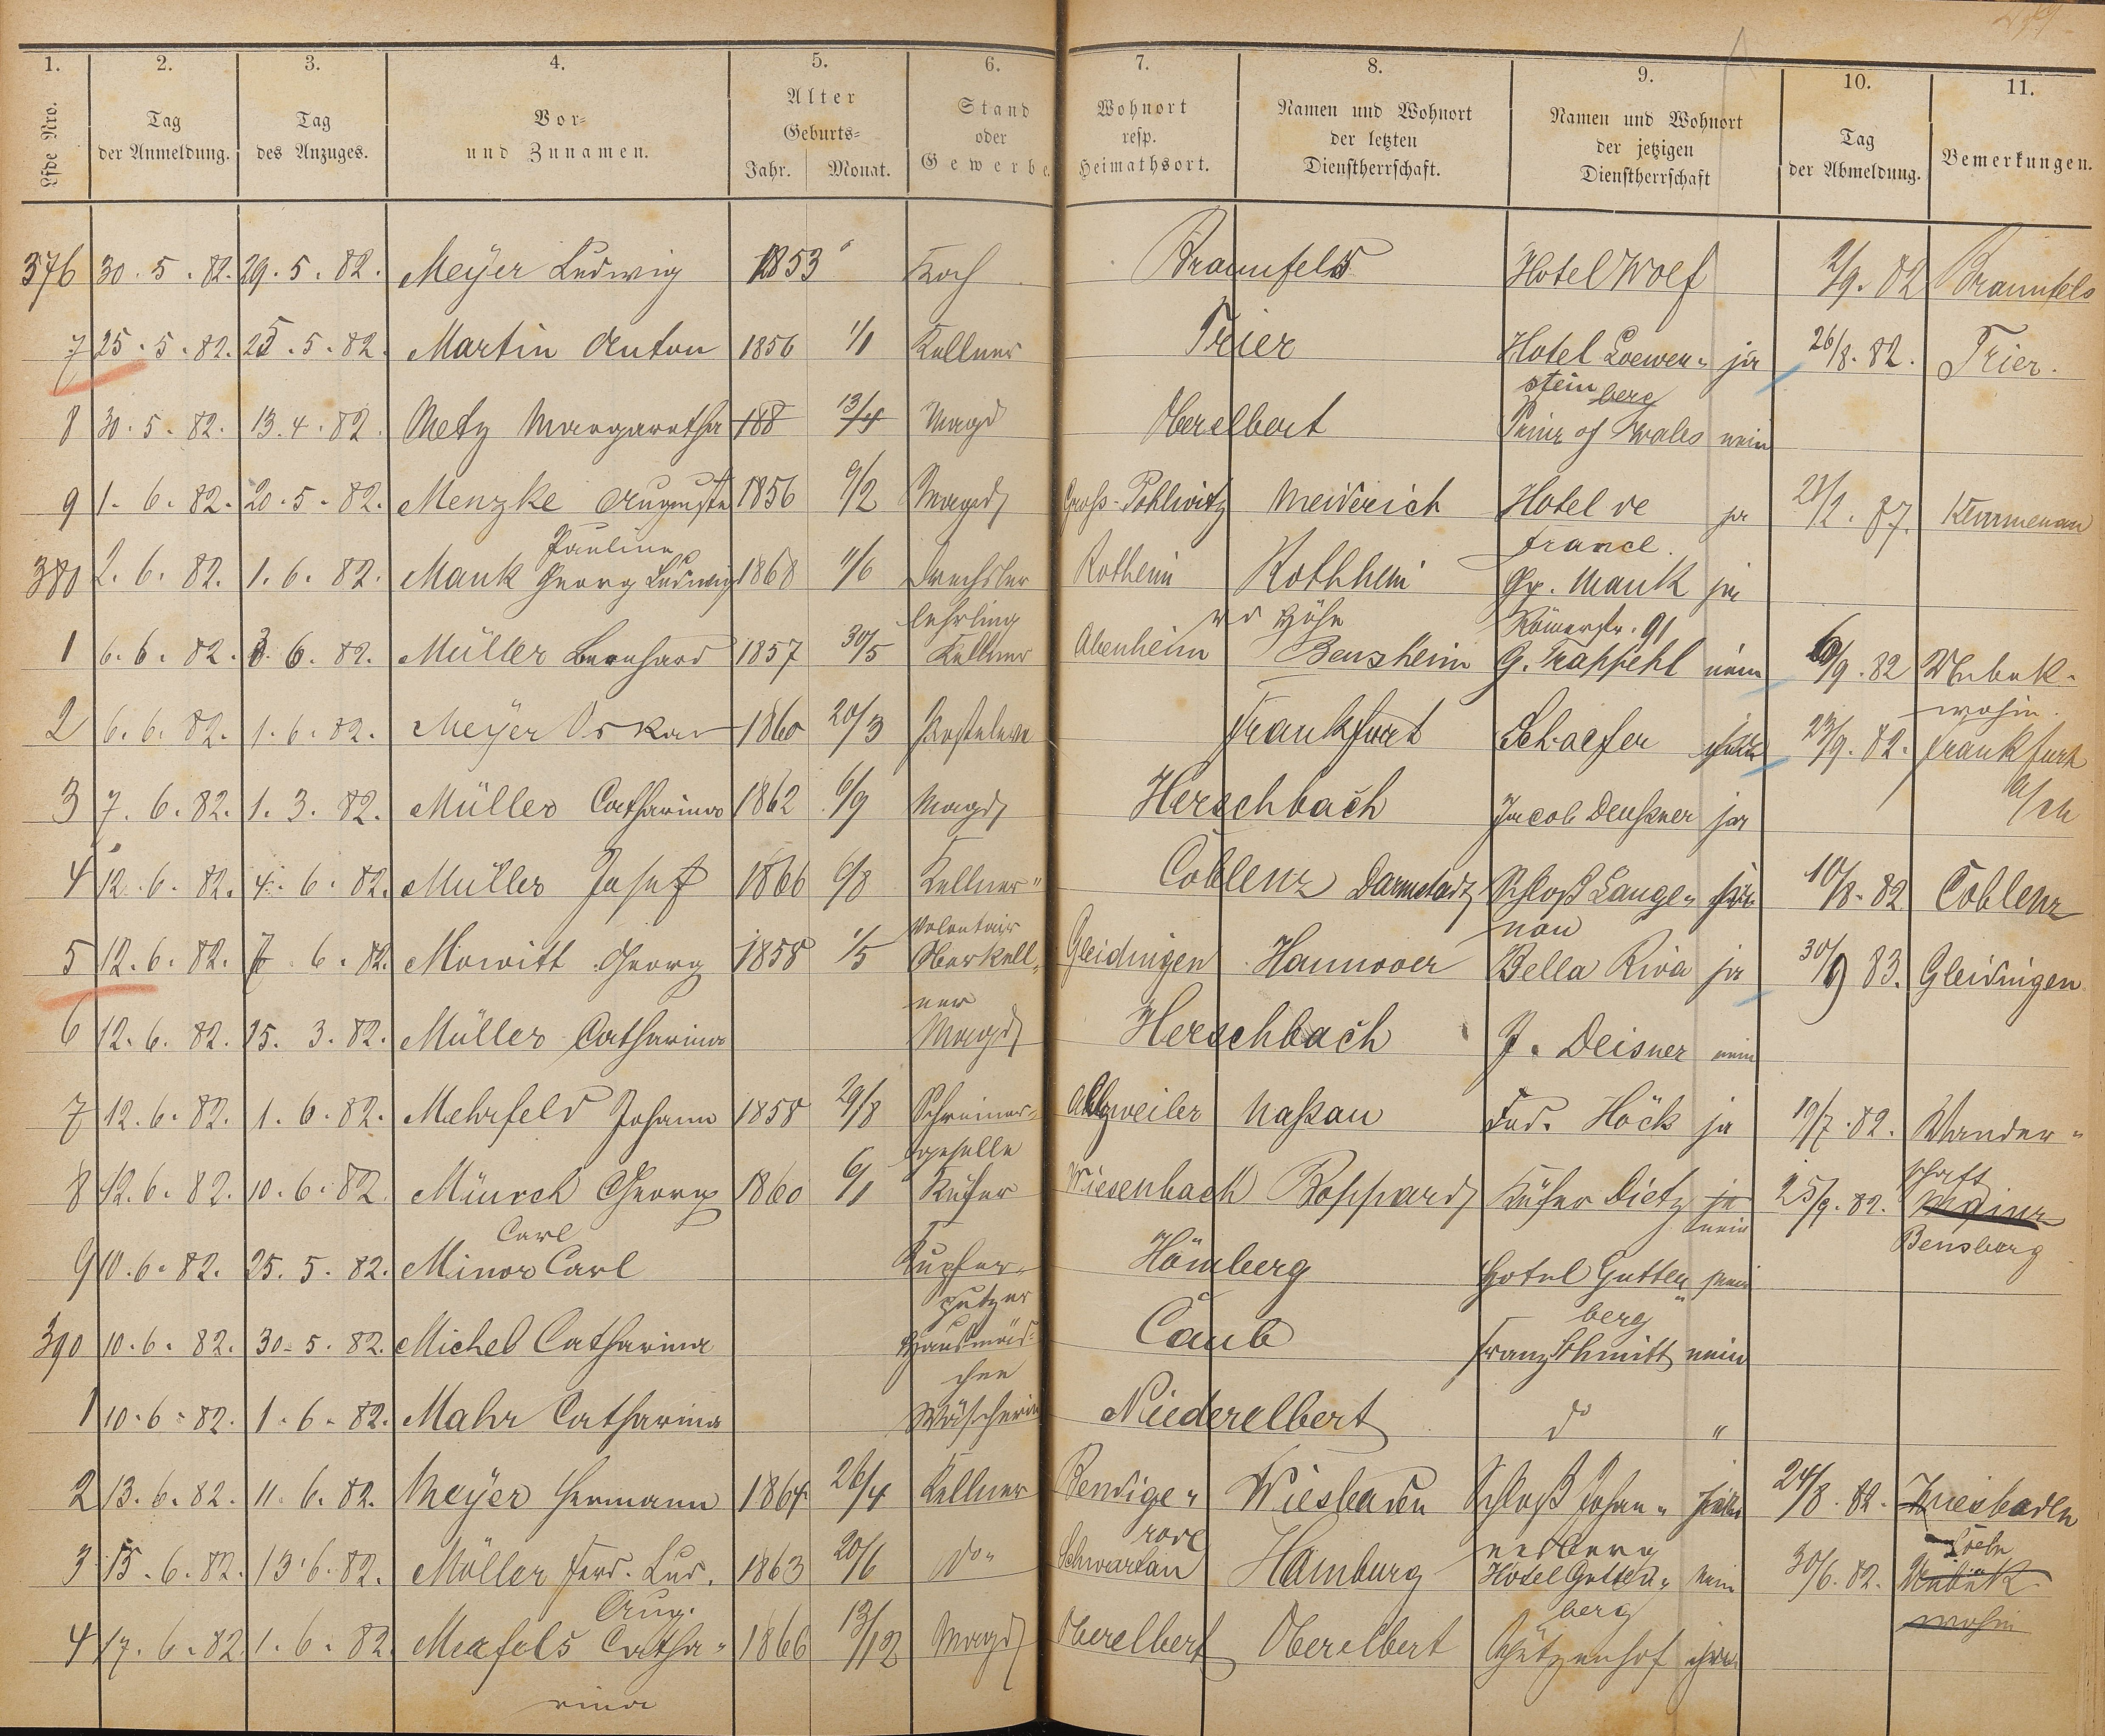 1. 2. 3. 4. 5. 6. 7. 8. 9. 10. 11.
Lfde Nro. Tag der Anmeldung. Tag des Anzuges. Vor- und Zunamen. Alter Geburts- Jahr. Monat. Stand oder Gewerbe. Wohnort resp. Heimathsort. Namen und Wohnort der letzten Dienstherrschaft. Namen und Wohnort der jetzigen Dienstherrschaft Tag der Abmeldung. Bemerkungen.
376 30. 5. 82. 29. 5. 82. Meyer Ludwig 1853 Koch Braunfels Hotel Wolf 2/9. 82 Braunfels
7 25. 5. 82. 25. 5. 82. Martin Anton 1856 1/1 Kellner Trier Hotel Loewen- ja 26/8. 82. Trier.
stein berg
8 30. 5. 82. 13. 4. 82. Metz Margaretha 188 13/4 Magd Oberelbert Prinz of Wales nein
9 1. 6. 82. 20. 5. 82. Menzke Auguste 1856 9/2 Magd Groß-Pohlwitz Meiderich Hotel de ja Kemmenau
Pauline france.
380 2. 6. 82. 1. 6. 82. Mank Georg Ludwig 1868 11/6 Drechsler Rotheim Rothheim Gg. Mank ja
lehrling v d Höhe Römerstr. 91
1 6. 6. 82. 3. 6. 82. Müller Bernhard 1857 30/5 Kellner Abenheim Bensheim G. Trappehl nein /9. 82 Unbek.
wohin.
2 6. 6. 82. 1. 6. 82. Meyer Oskar 1860 20/3 Frankfurt Schaefer 23/9. 82. Frankfurt
a/M
3 7. 6. 82. 1. 3. 82. Müller Catharina 1862 6/9 Magd Herschbach Jacob Deußner ja
4 12. 6. 82. 4. 6. 82. Müller Josef 1866 6/8 Kellner- Coblenz Darmstadt Schloß Lange- 10/8. 82 Coblenz
Volontair nau
5 12. 6. 82. 7. 6. 82. Mowitt Georg 1858 1/5 Oberkell- Gleidingen Hannover Bella Riva ja 30/9 83. Gleidingen
ner
6 12. 6. 82. 15. 3. 82. Müller Catharina Magd Herschbach J. Deisner nein
7 12. 6. 82. 1. 6. 82. Mehrfeld Johann 1858 29/8 Schreiner- Ahlweiler Naßau Fud. Höck ja 19/7. 82. Wander-
geselle schaft
8 12. 6. 82. 10. 6. 82 Münch Georg 1860 6/1 Küfer Wiesenbach Boppard Küfer Dietz ja 25/9. 82. Mainz
Carl nein Bensberg
9 10. 6. 82. 25. 5. 82. Minor Carl Kupfer- Hömberg Hotel Gutten- nein
putzer berg
390 10. 6. 82. 30. 5. 82. Michel Catharina Hausmäd- Caub Franz Schmitt nein
chen
1 10. 6. 82. 1. 6. 82. Mahr Catharina Wäscherin Niederelbert do "
2 13. 6. 82. 11. 6. 82. Meyer Hermann 1864 26/4 Kellner Bendige- Wiesbaden Schloß Johan- 24/8. 82. Wiesbaden
rode nesberg Cöln
3 15. 6. 82. 13. 6. 82. Möller Ferd. Lud. 1863 20/6 do" Schwartau Hamburg Hotel Gutten- nein 30/6. 82. Unbek.
Aug. berg wohin
4 17. 6. 82 1. 6. 82. Mafels Catha- 1866 13/12 Magd Oberelbert Oberelbert Schützenhof
rina